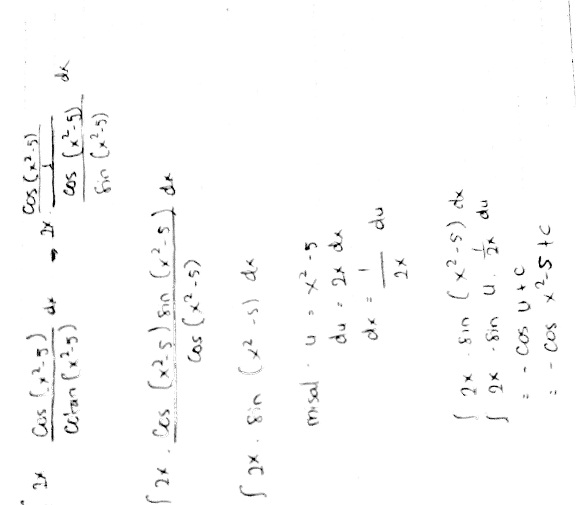 ∫ 2x cos (x²-5) / cotan (x²-5) dx → 2x · (cos (x²-5) / 1) / (cos (x²-5) / sin (x²-5)) dx
∫ 2x · cos (x²-5) sin (x²-5) / cos (x²-5) dx
∫ 2x · sin (x²-5) dx
misal · u = x²-5
du = 2x dx
dx = 1 / 2x du
∫ 2x · sin (x²-5) dx
∫ 2x · sin u · 1 / 2x du
= - cos u + c
= - cos x²-5 + c